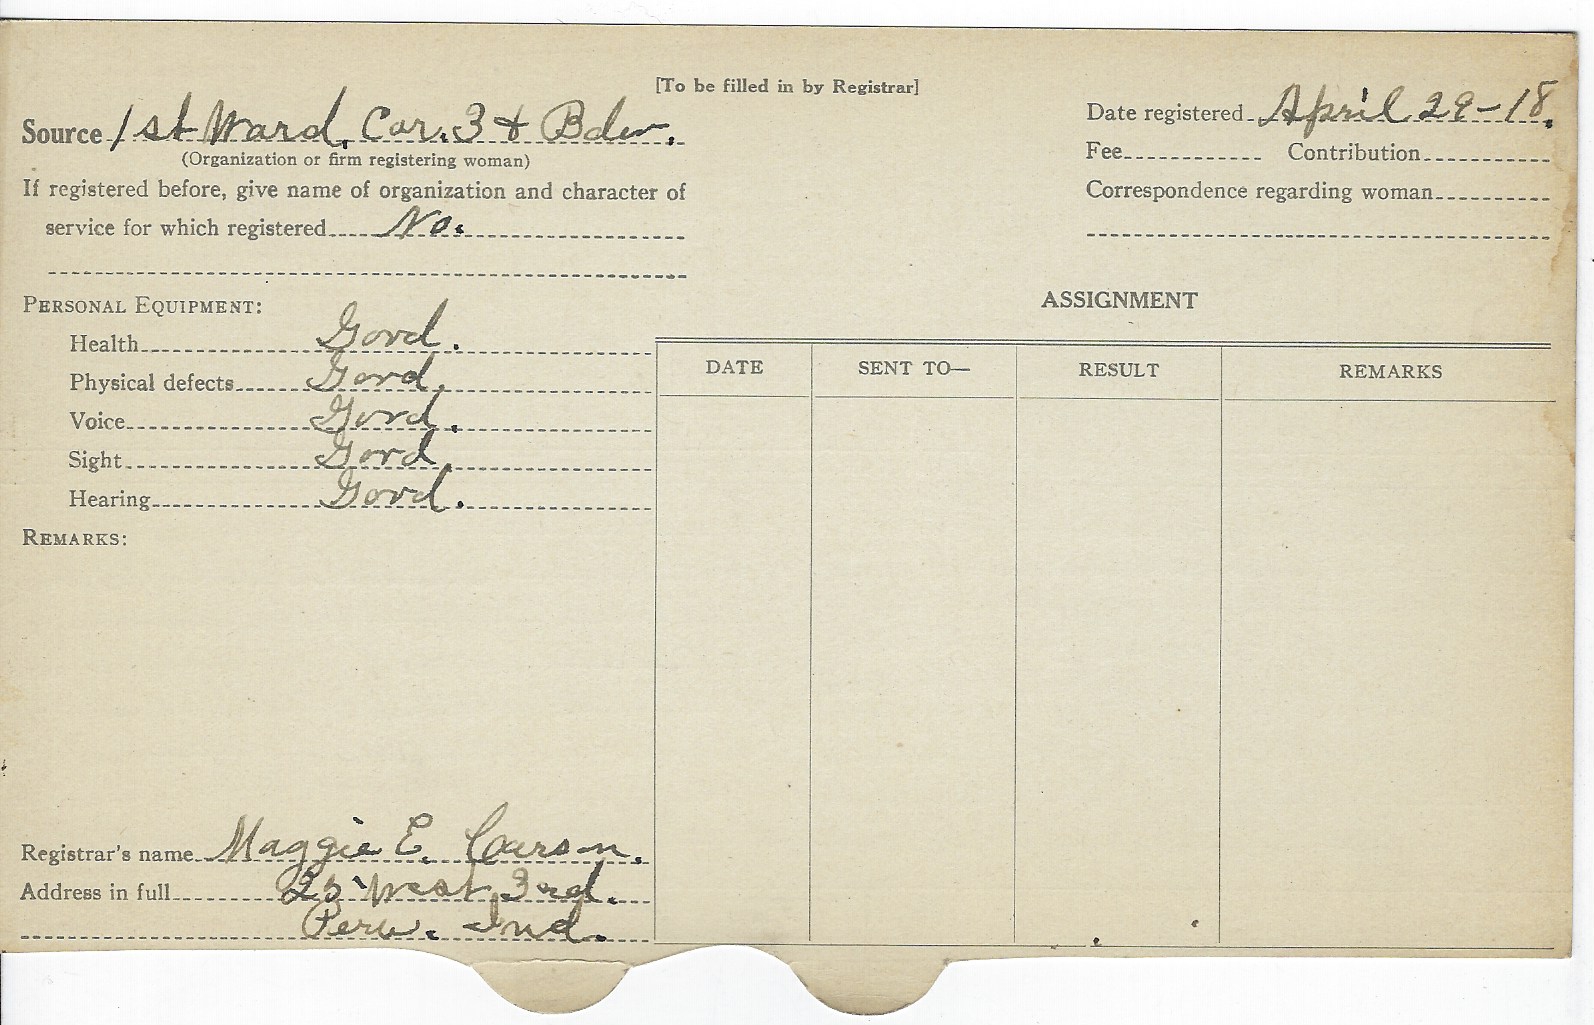 [To be filled in by Registrar]
Source 1st Ward, Cor. 3 & Bdw.
(Organization or firm registering woman)
If registered before, give name of organization and character of
service for which registered No.
Date registered April 29-18.
Fee Contribution
Correspondence regarding woman
PERSONAL EQUIPMENT:
Health Good.
Physical defects Good.
Voice Good.
Sight Good.
Hearing Good.
REMARKS:
ASSIGNMENT
DATE SENT TO— RESULT REMARKS
Registrar's name Maggie E. Carson.
Address in full 25 West 3rd.
Peru. Ind.